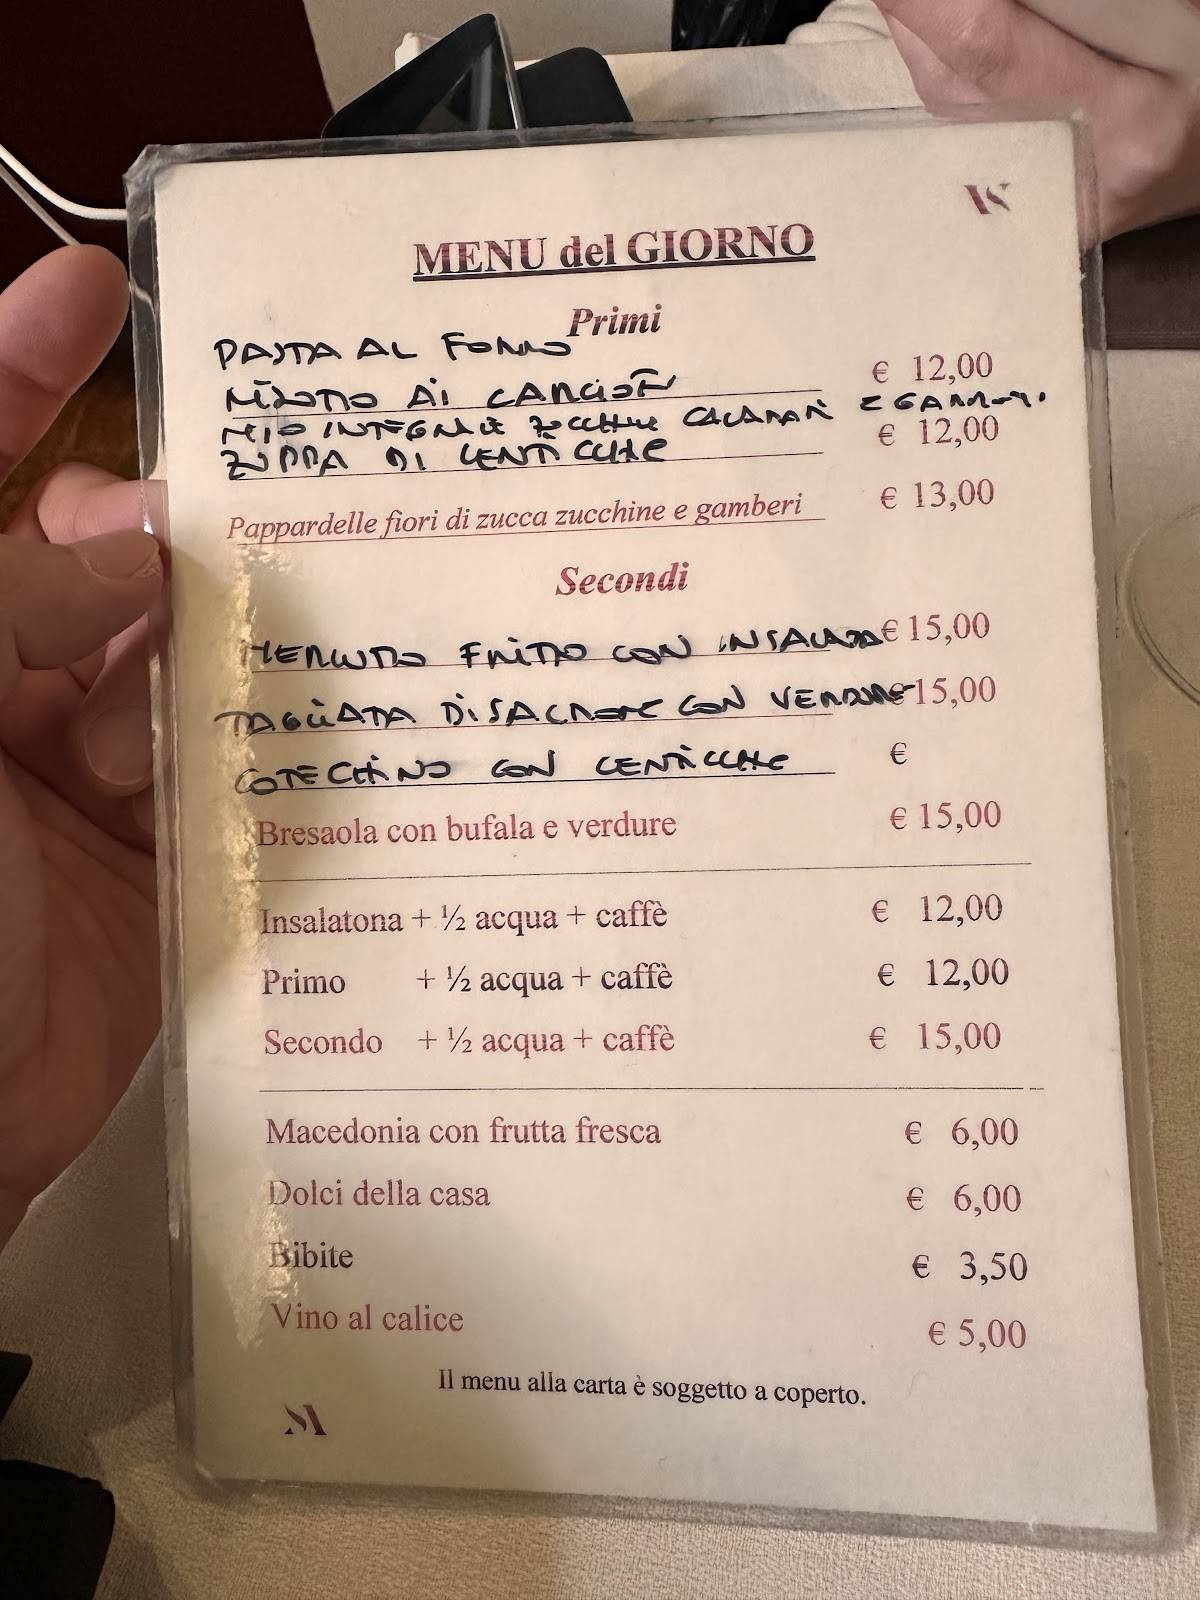 MENU del GIORNO
Primi
PASTA AL FORNO
RISOTTO AI CARCIOFI
€ 12,00
RISO INTEGRALE ZUCCHINE CALAMARI E GAMBERI
ZUPPA DI LENTICCHIE
€ 12,00
Pappardelle fiori di zucca zucchine e gamberi € 13,00
Secondi
MERLUZZO FRITTO CON INSALATA € 15,00
TAGLIATA DI SALMONE CON VERDURE € 15,00
COTECHINO CON LENTICCHIE €
Bresaola con bufala e verdure € 15,00
Insalatona + ½ acqua + caffè € 12,00
Primo + ½ acqua + caffè € 12,00
Secondo + ½ acqua + caffè € 15,00
Macedonia con frutta fresca € 6,00
Dolci della casa € 6,00
Bibite € 3,50
Vino al calice € 5,00
Il menu alla carta è soggetto a coperto.